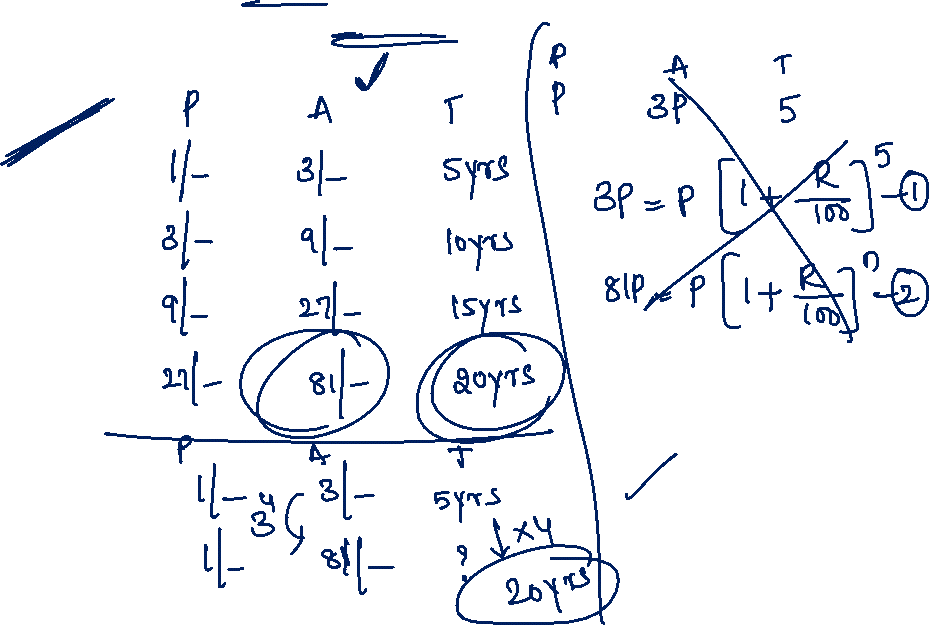 P A T
1/- 3/- 5yrs
3/- 9/- 10yrs
9/- 27/- 15yrs
27/- 81/- 20yrs
P A T
1/- 3/- 5yrs
3^4 ×4
1/- 81/- ?
20yrs
P A T
P 3P 5
3P = P [1 + R/100]^5 - ①
81P = P [1 + R/100]^n - ②